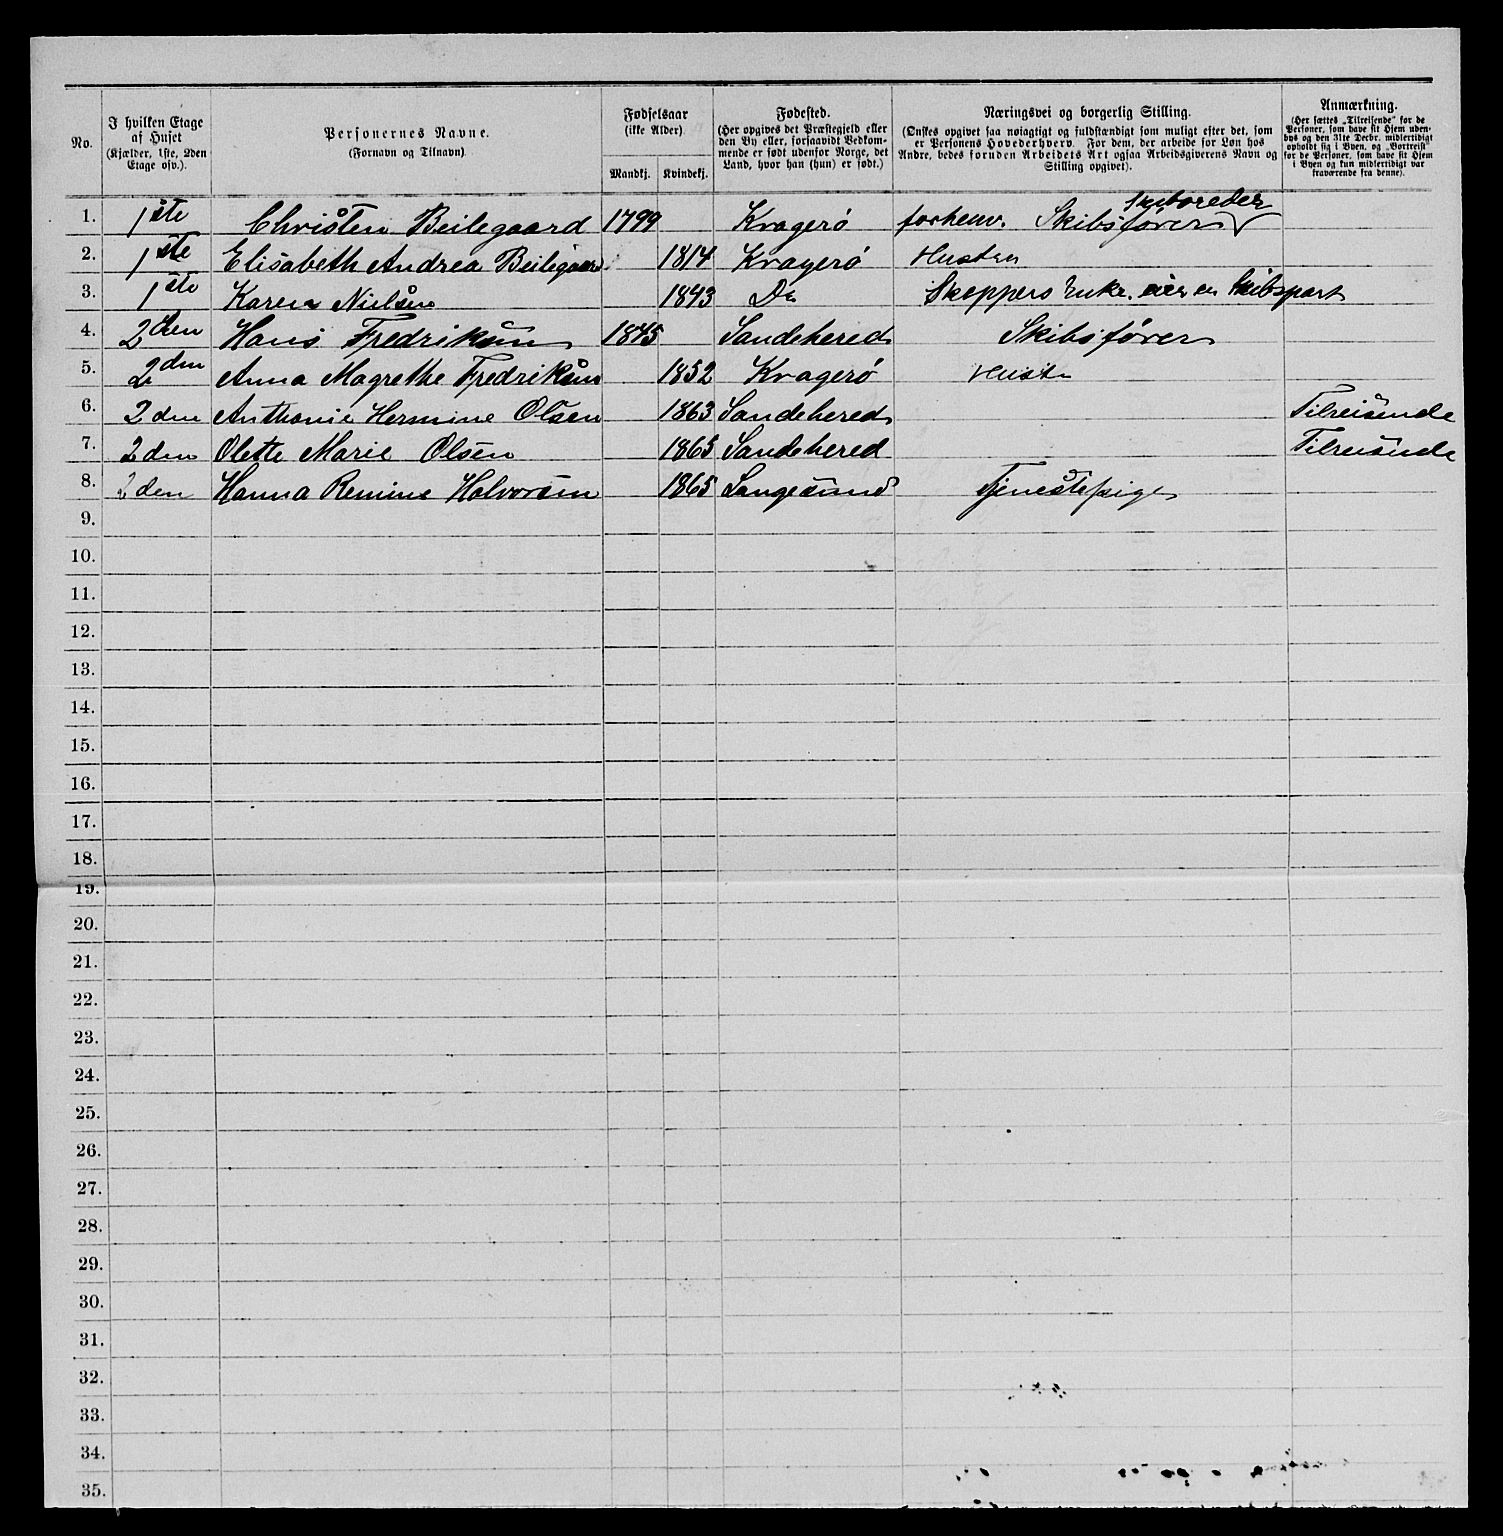 No. | I hvilken Etage af Huset (Kjælder, 1ste, 2den Etage osv.). | Personernes Navne. (Fornavn og Tilnavn) | Fødselsaar (ikke Alder) Mandkj. | Kvindekj. | Fødested. (Her opgives det Præstegjeld eller den By eller, forsaavidt Vedkommende er født udenfor Norge, det Land, hvor han (hun) er født.) | Næringsvei og borgerlig Stilling. (Ønskes opgivet saa nøiagtigt og fuldstændigt som muligt efter det, som er Personens Hovederhverv. For dem, der arbeide for Løn hos Andre, bedes foruden Arbeidets Art ogsaa Arbeidsgiverens Navn og Stilling opgivet). | Anmærkning. (Her sættes „Tilreisende" for de Personer, som have sit Hjem udenbys og den 31te Decbr. midlertidigt opholdt sig i Byen, og „Bortreist" for de Personer, som have sit Hjem i Byen og kun midlertidigt var fraværende fra denne).
1. 1ste Christen Beilegaard 1799 Kragerö forhenv. Skibsfører Skibsreder
2. 1ste Elisabeth Andrea Beilegaard 1814 Kragerö Hustru
3. 1ste Karen Nielsen 1843 Do Skeppers Enke. eier en Skibspart
4. 2den Hans Fredriksen 1845 Sandehered Skibsfører
5. 2den Anna Magrethe Fredriksen 1852 Kragerö Hustr
6. 2den Anthonie Hermine Olsen 1863 Sandehered Tilreisende
7. 2den Olette Marie Olsen 1865 Sandehered Tilreisende
8. 2den Hanna Remine Halvorsen 1865 Langesund Tjenestepige
9.
10.
11.
12.
13.
14.
15.
16.
17.
18.
19.
20.
21.
22.
23.
24.
25.
26.
27.
28.
29.
30.
31.
32.
33.
34.
35.